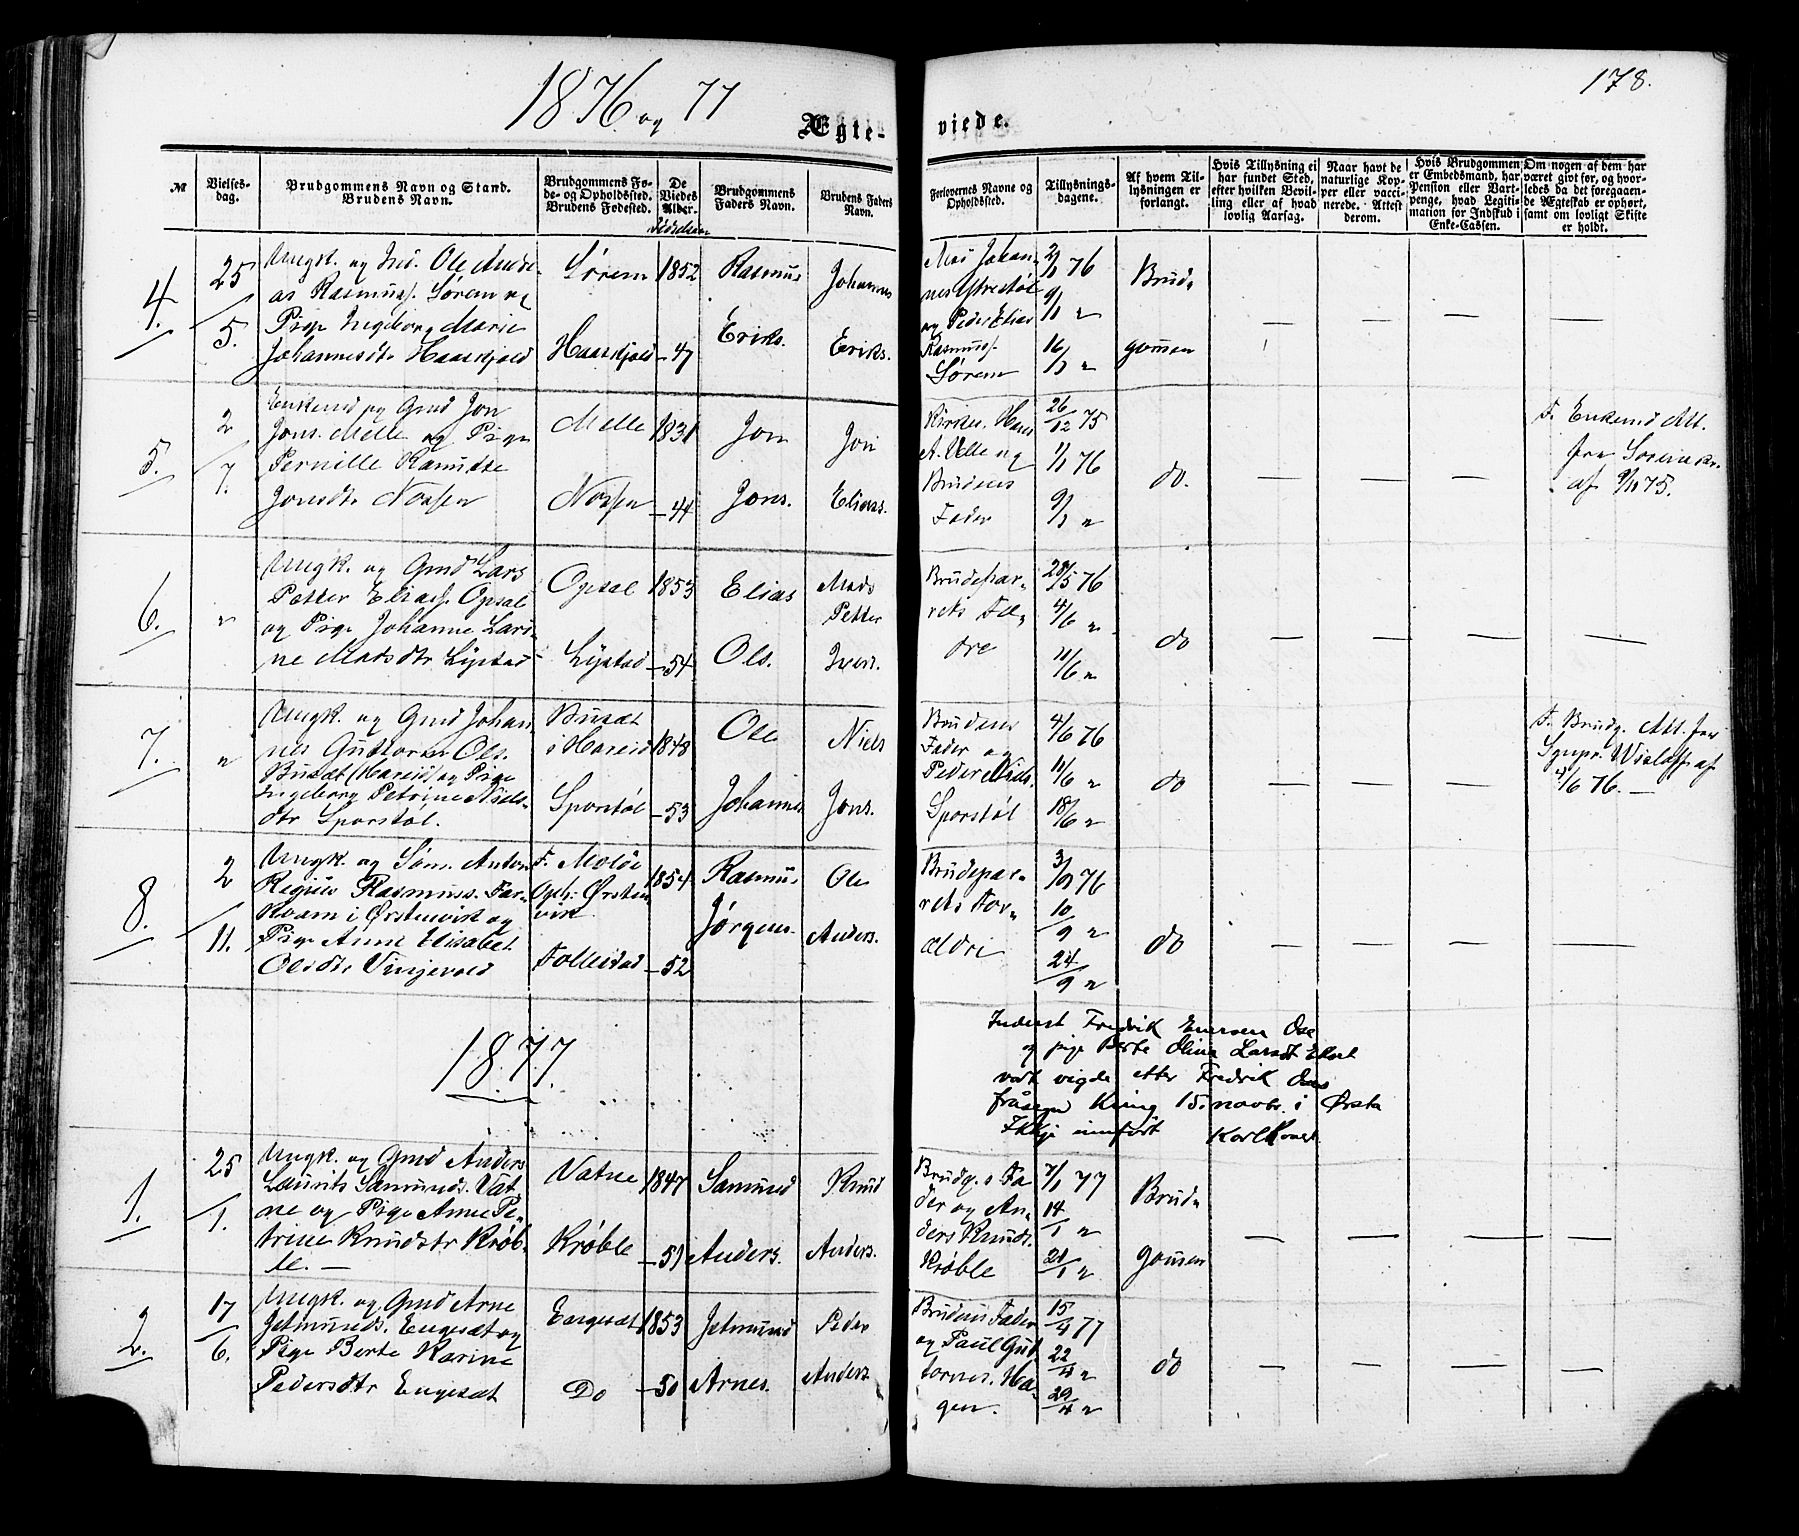 1876 og 77
178.
Ægte-
viede.
№
Vielses-
dag.
Brudgommens Navn og Stand.
Brudens Navn.
Brudgommens Fø-
de- og Opholdssted.
Brudens Fødested.
De
Viedes
Alder.
Brudgommens
Faders Navn.
Brudens Faders
Navn.
Forlovernes Navne og
Opholdssted.
Tillysnings-
dagene.
Af hvem Til-
lysningen er
forlangt.
Hvis Tillysning ei
har fundet Sted,
efter hvilken Bevil-
ling eller af hvad
lovlig Aarsag.
Naar havt de
naturlige Kop-
per eller vacci-
nerede. Attest
derom.
Hvis Brudgommen
er Embedsmand, har
Pension eller Vart-
penge, hvad Legiti-
mation for Indskud i
Enke-Cassen.
Om nogen af dem har
været givt før, og hvor-
ledes da det foregaaen-
de Ægteskab er ophørt,
samt om lovligt Skifte
er holdt.
4.
25
/
5.
Ungk. og Ind. Ole Ande-
as Rasmuss. Sørem og
Pige Ingeborg Marie
Johannesdtr Haaskjold
Sørem
Haaskjold
1852
-47
Rasmus
Eriks.
Johannes
Eriks.
Johan-
nes
og Peder Elias
Rasmuss.
Sørem
2/1 76
9/1 "
16/1 "
Brud-
gomen
5.
2
/
7.
Enkemd og Gmd Jon
Jons. Melle og Pige
Pernille Knudse
Jonsdtr Nossen
Melle
Nossen
1831
-41
Jon
Jons.
Jon
Elias.
Kirkes. Hans
A. Velle og
Brudens
Fader
26/12 75
1/1 76
9/1 "
do.
F. Enkemd Att.
fra Sorensk.
af 9/10 75.
6.
"
Ungk. og Gmd Lars
Petter Eliass. Opsal
og Pige Johanne Lars-
ne Madsdtr Lystad
Opsal
Lystad
1853
-54
Elias
Ols.
Mads
Petter
Ivers.
Brudepar-
rets Fæ-
dre
28/5 76
4/6 "
11/6 "
do
7.
"
Ungk. og Gmd Johan-
nes Guttorm Ols.
Busæt (Hareid) og Pige
Ingeborg Petrine Niels-
dtr Sporstøl.
Busæt
i Hareid
Sporstøl
1848
-53
Ole
Johannes
Niels
Jons.
Brudens
Fader og
Peder Niels.
Sporstøl
4/6 76
11/6 "
18/6 "
do
F. Brudg. Att. fra
Sgnpr. af
4/6 76. —
8.
2
/
11.
Ungk. og Søm. Anton
Regius Rasmuss.
Kvam i Ørstenvik og
Pige Anne Elisabet
Olsdtr Vinjevold
F. Moldø
Oph. Ørsten-
vik.
Follestad
1854
-52
Rasmus
Jørgens.
Ole
Anders.
Brudepar-
rets For-
ældri
3/9 76
10/9 "
24/9 "
do
1877.
Inderst Fredrik Emersen Ose
og pige Berte Oline Larsdt
vart vigde etter Fredrik Oses
fråsegn Kring 15. novbr. i Ørsta
Ikkje innført
1.
25
/
1.
Ungk. og Gmd Anders
Laurits Samunds. Vat-
ne og Pige Anne Pe-
trine Knudsdtr Krøb-
le. —
Vatne
Krøble
1847
-51
Samund
Anders.
Knud
Anders.
Brudg. s Fa-
der og An-
ders Knuds.
Krøble
7/1 77
14/1 "
21/1 "
Brud-
gomen
2.
17
/
6.
Ungk. og Gmd Arne
Jetmunds. Engesæt og
Pige Berte Karine
Pedersdtr Engesæt
Engesæt
Do
1853
-50
Jetmund
Arnes.
Peder
Anders.
Brudens Fader
og Paul Gut-
tormss. Ha-
gen.
15/4 77
22/4 "
29/4 "
do